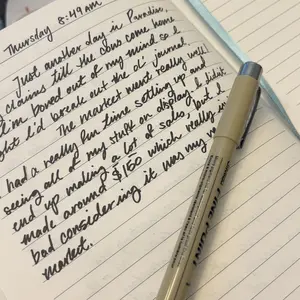 Thursday 8:49 AM
Just another day in Paradise,
claims till the cows come home
I'm bored out of my mind so I
I'd break out the ol' journal.
The market went really well!
had a really fun time setting up and
seeing all of my stuff on display. I didn't
end up making a lot of sales, but I
made around $160 which really
bad considering it was my
market.